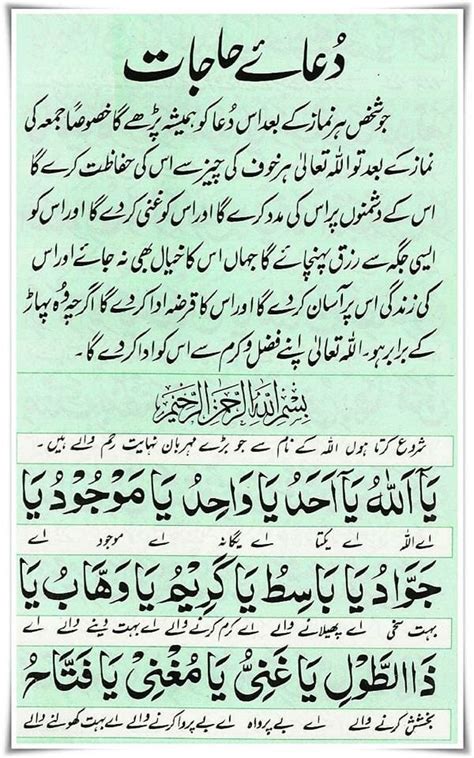 دُعائے حاجات
جو شخص ہر نماز کے بعد اس دُعا کو ہمیشہ پڑھے گا خصوصاً جمعہ کی
نماز کے بعد تو اللہ تعالیٰ ہر خوف کی چیز سے اس کی حفاظت کرے گا
اس کے دشمنوں پر اس کی مدد کرے گا اور اس کو غنی کردے گا اور اس کو
ایسی جگہ سے رزق پہنچائے گا جہاں اس کا خیال بھی نہ جائے اور اس
کی زندگی اس پر آسان کردے گا اور اس کا قرضہ ادا کردے گا اگرچہ وُہ پہاڑ
کے برابر ہو۔ اللہ تعالیٰ اپنے فضل و کرم سے اس کو ادا کردے گا۔
بِسْمِ اللهِ الرَّحْمٰنِ الرَّحِيْمِ
شروع کرتا ہوں اللہ کے نام سے جو بڑے مہربان نہایت رحم والے ہیں۔
يَآ اَللّٰهُ يَآ اَحَدُ يَا وَاحِدُ يَا مَوْجُوْدُ يَا
اے اللہ اے یکتا اے یگانہ اے موجود اے
جَوَّادُ يَا بَاسِطُ يَا كَرِيْمُ يَا وَهَّابُ يَا
بہت سخی اے پھیلانے والے اے کرم کرنے والے اے بہت دینے والے اے
ذَاالطَّوْلِ يَا غَنِيُّ يَا مُغْنِيْ يَا فَتَّاحُ
بخشش کرنے والے اے بے پرواہ اے بے پروا کرنے والے اے بہت کھولنے والے